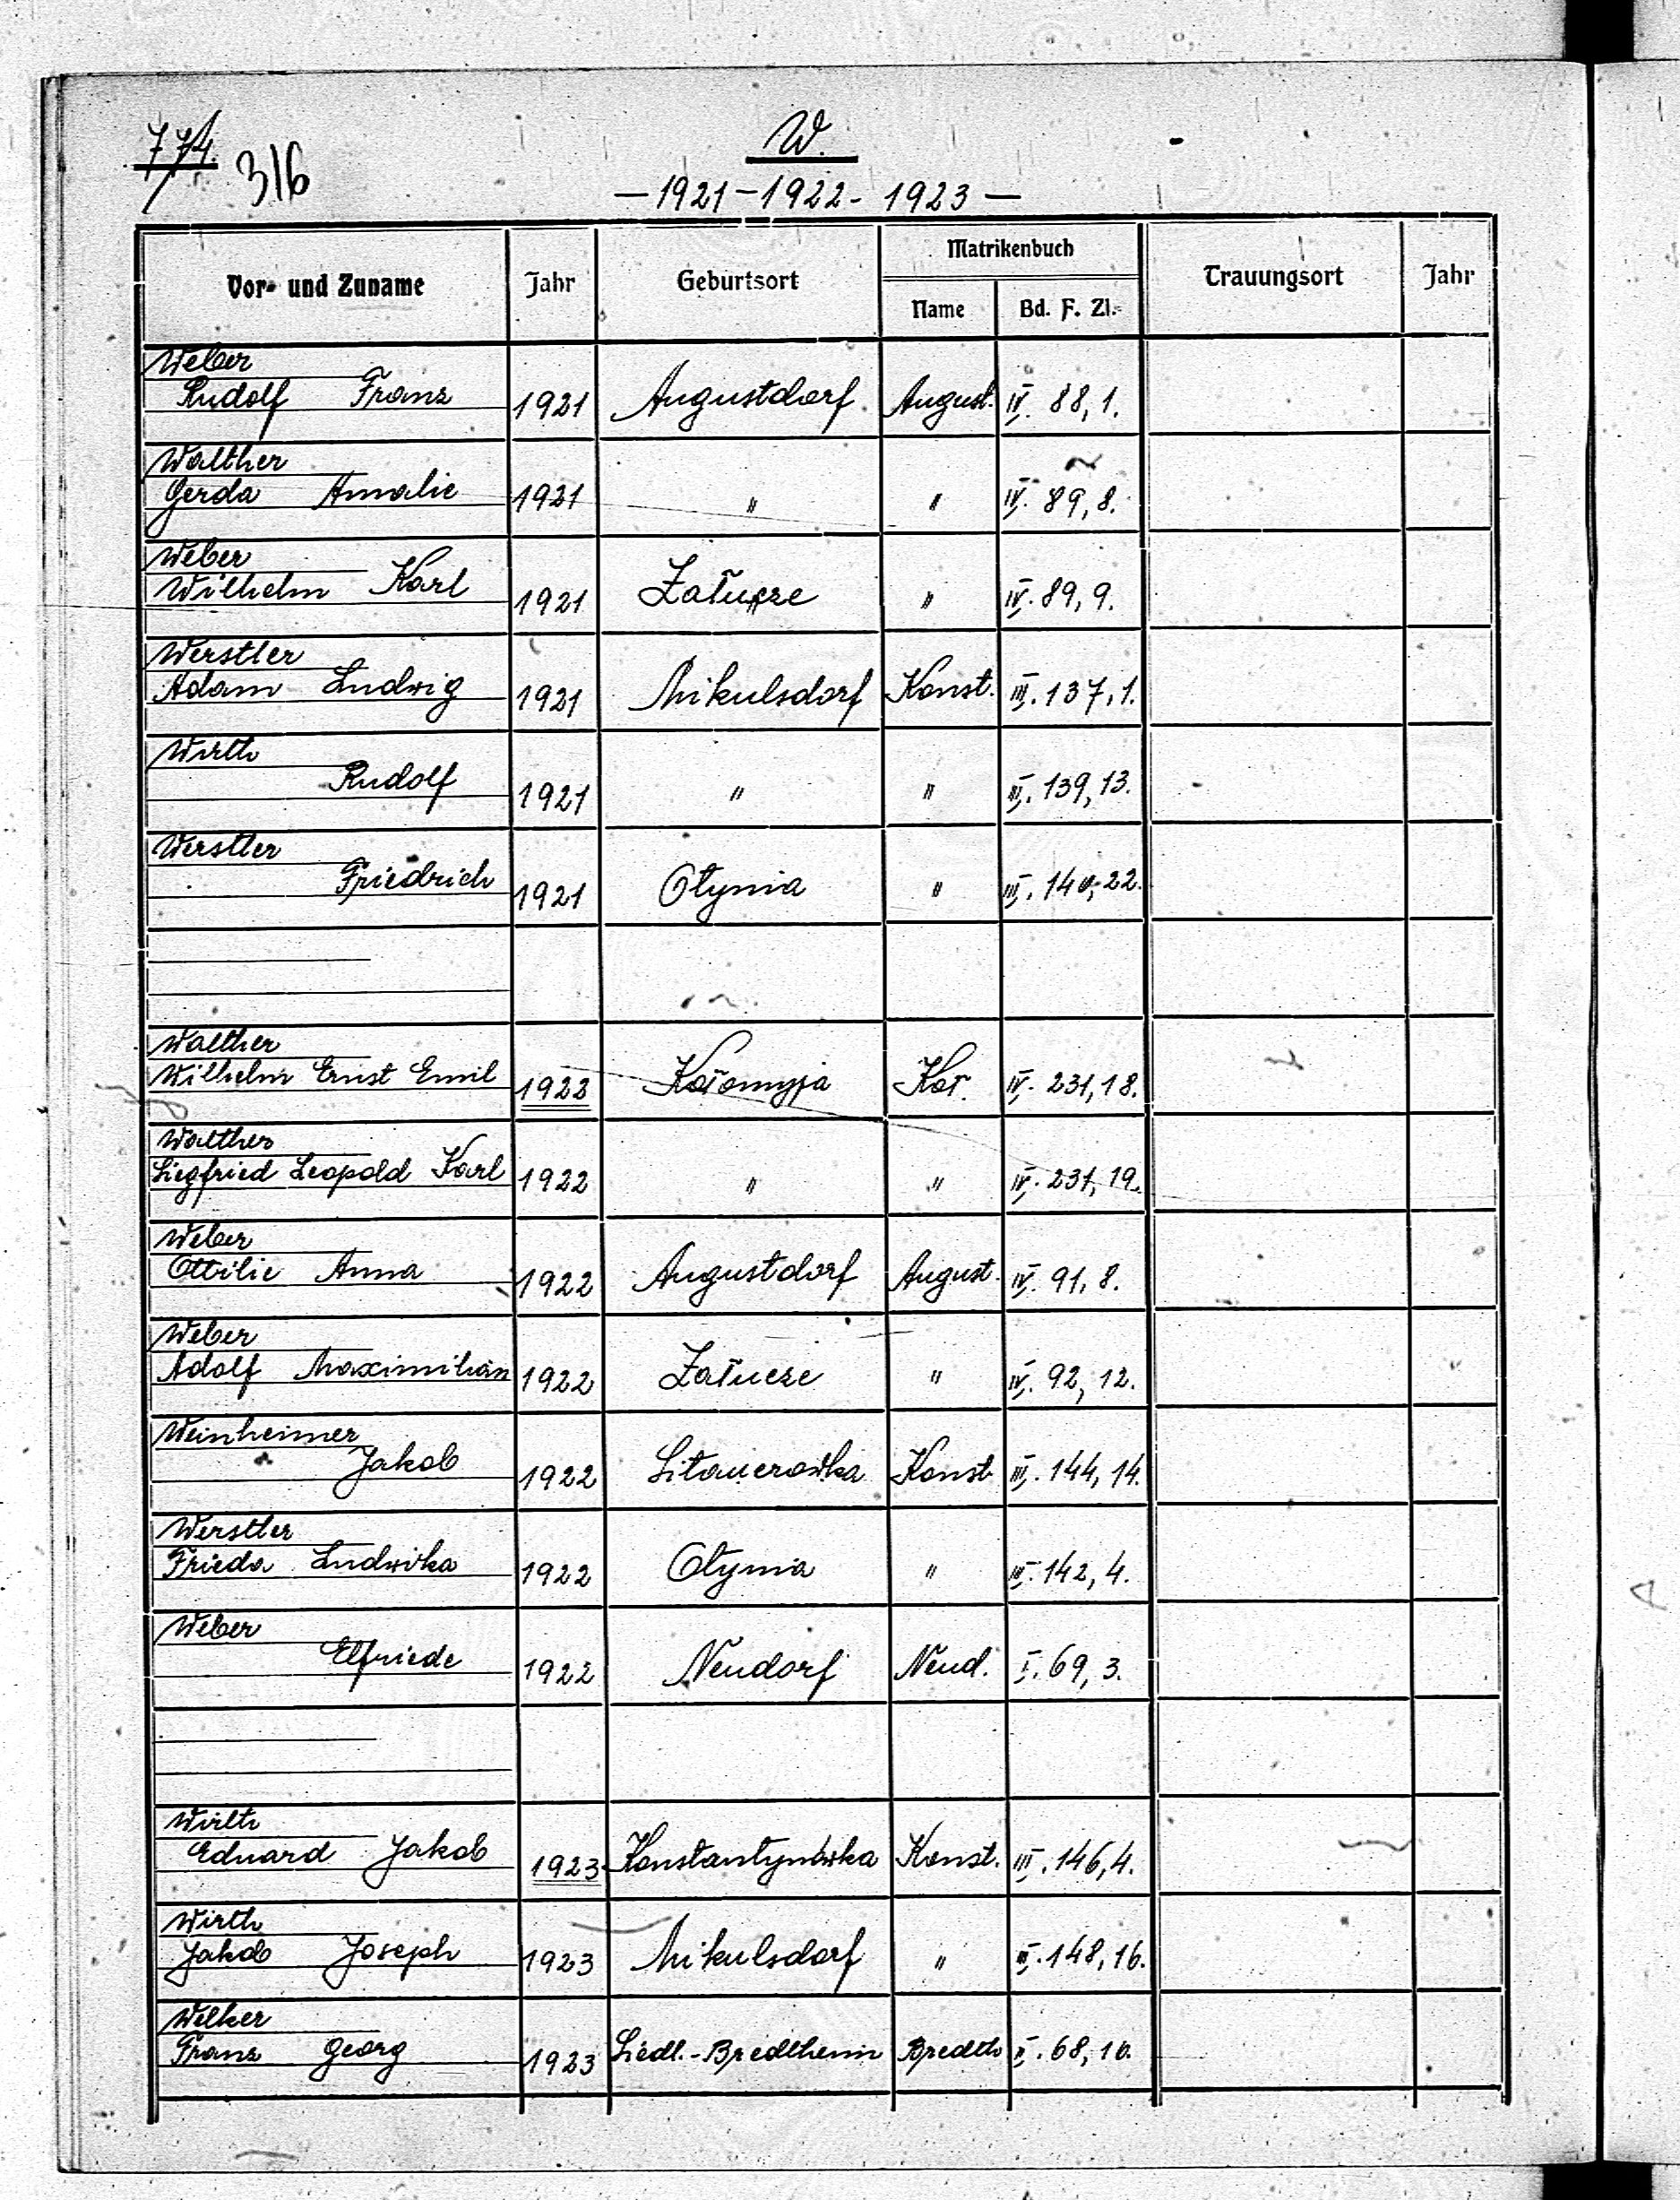 774.
316
W.
— 1921 – 1922 - 1923 —
Vor- und Zuname Jahr Geburtsort Matrikenbuch Trauungsort Jahr
Name Bd. F. Zl.
Weber
Rudolf Franz 1921 Augustdorf August. IV. 88, 1.
Walther
Gerda Amalie 1921 " " IV. 89, 8.
Weber
Wilhelm Karl 1921 Załucze " IV. 89, 9.
Werstler
Adam Ludwig 1921 Mikulsdorf Konst. III. 137, 1.
Wirth
Rudolf 1921 " " III. 139, 13.
Werstler
Friedrich 1921 Otynia " III. 140, 22.
Walther
Wilhelm Ernst Emil 1922 Kołomyja Koł. IV. 231, 18.
Walther
Siegfried Leopold Karl 1922 " " IV. 231, 19.
Weber
Ottilie Anna 1922 Augustdorf August. IV. 91, 8.
Weber
Adolf Maximilian 1922 Załucze " IV. 92, 12.
Weinheimer
Jakob 1922 Sitauerówka Konst III. 144, 14.
Werstler
Frieda Ludwika 1922 Otynia " III. 142, 4.
Weber
Elfriede 1922 Neudorf Neud. I. 69, 3.
Wirth
Eduard Jakob 1923 Konstantynówka Konst. III. 146, 4.
Wirth
Jakob Joseph 1923 Mikulsdorf " III. 148, 16.
Welker
Franz Georg 1923 Siedl.-Bredtheim Bredth II. 68, 10.